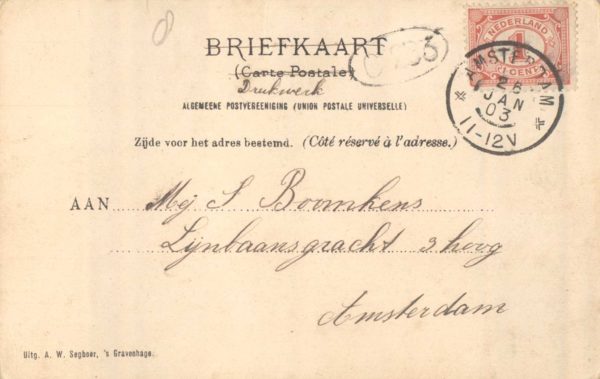 8
BRIEFKAART
(Carte Postale)
Drukwerk
ALGEMEENE POSTVEREENIGING (UNION POSTALE UNIVERSELLE)
Zijde voor het adres bestemd. (Côté réservé à l'adresse.)
NEDERLAND
1
CENT
AMSTERDAM
JAN
03
11-12V
AAN Mej S Boomkens
Lijnbaansgracht 3 hoog
Amsterdam
Uitg. A. W. Segboer, 's Gravenhage.